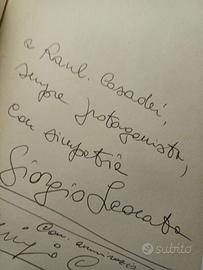 a Raul Casadei,
sempre protagonista,
con simpatia
Giorgio
Con ammiraz
subito